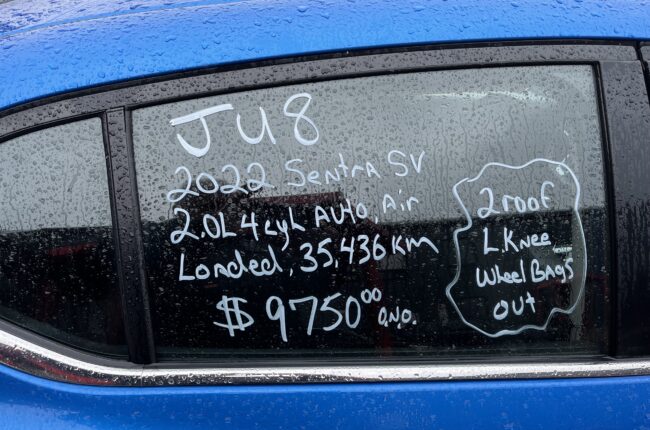 JU8
2022 Sentra SV
2.0L 4 cyl Auto, Air
Loaded, 35,436 Km
$9750⁰⁰ O.N.O.
2 roof
L. Knee
Wheel Bags
out